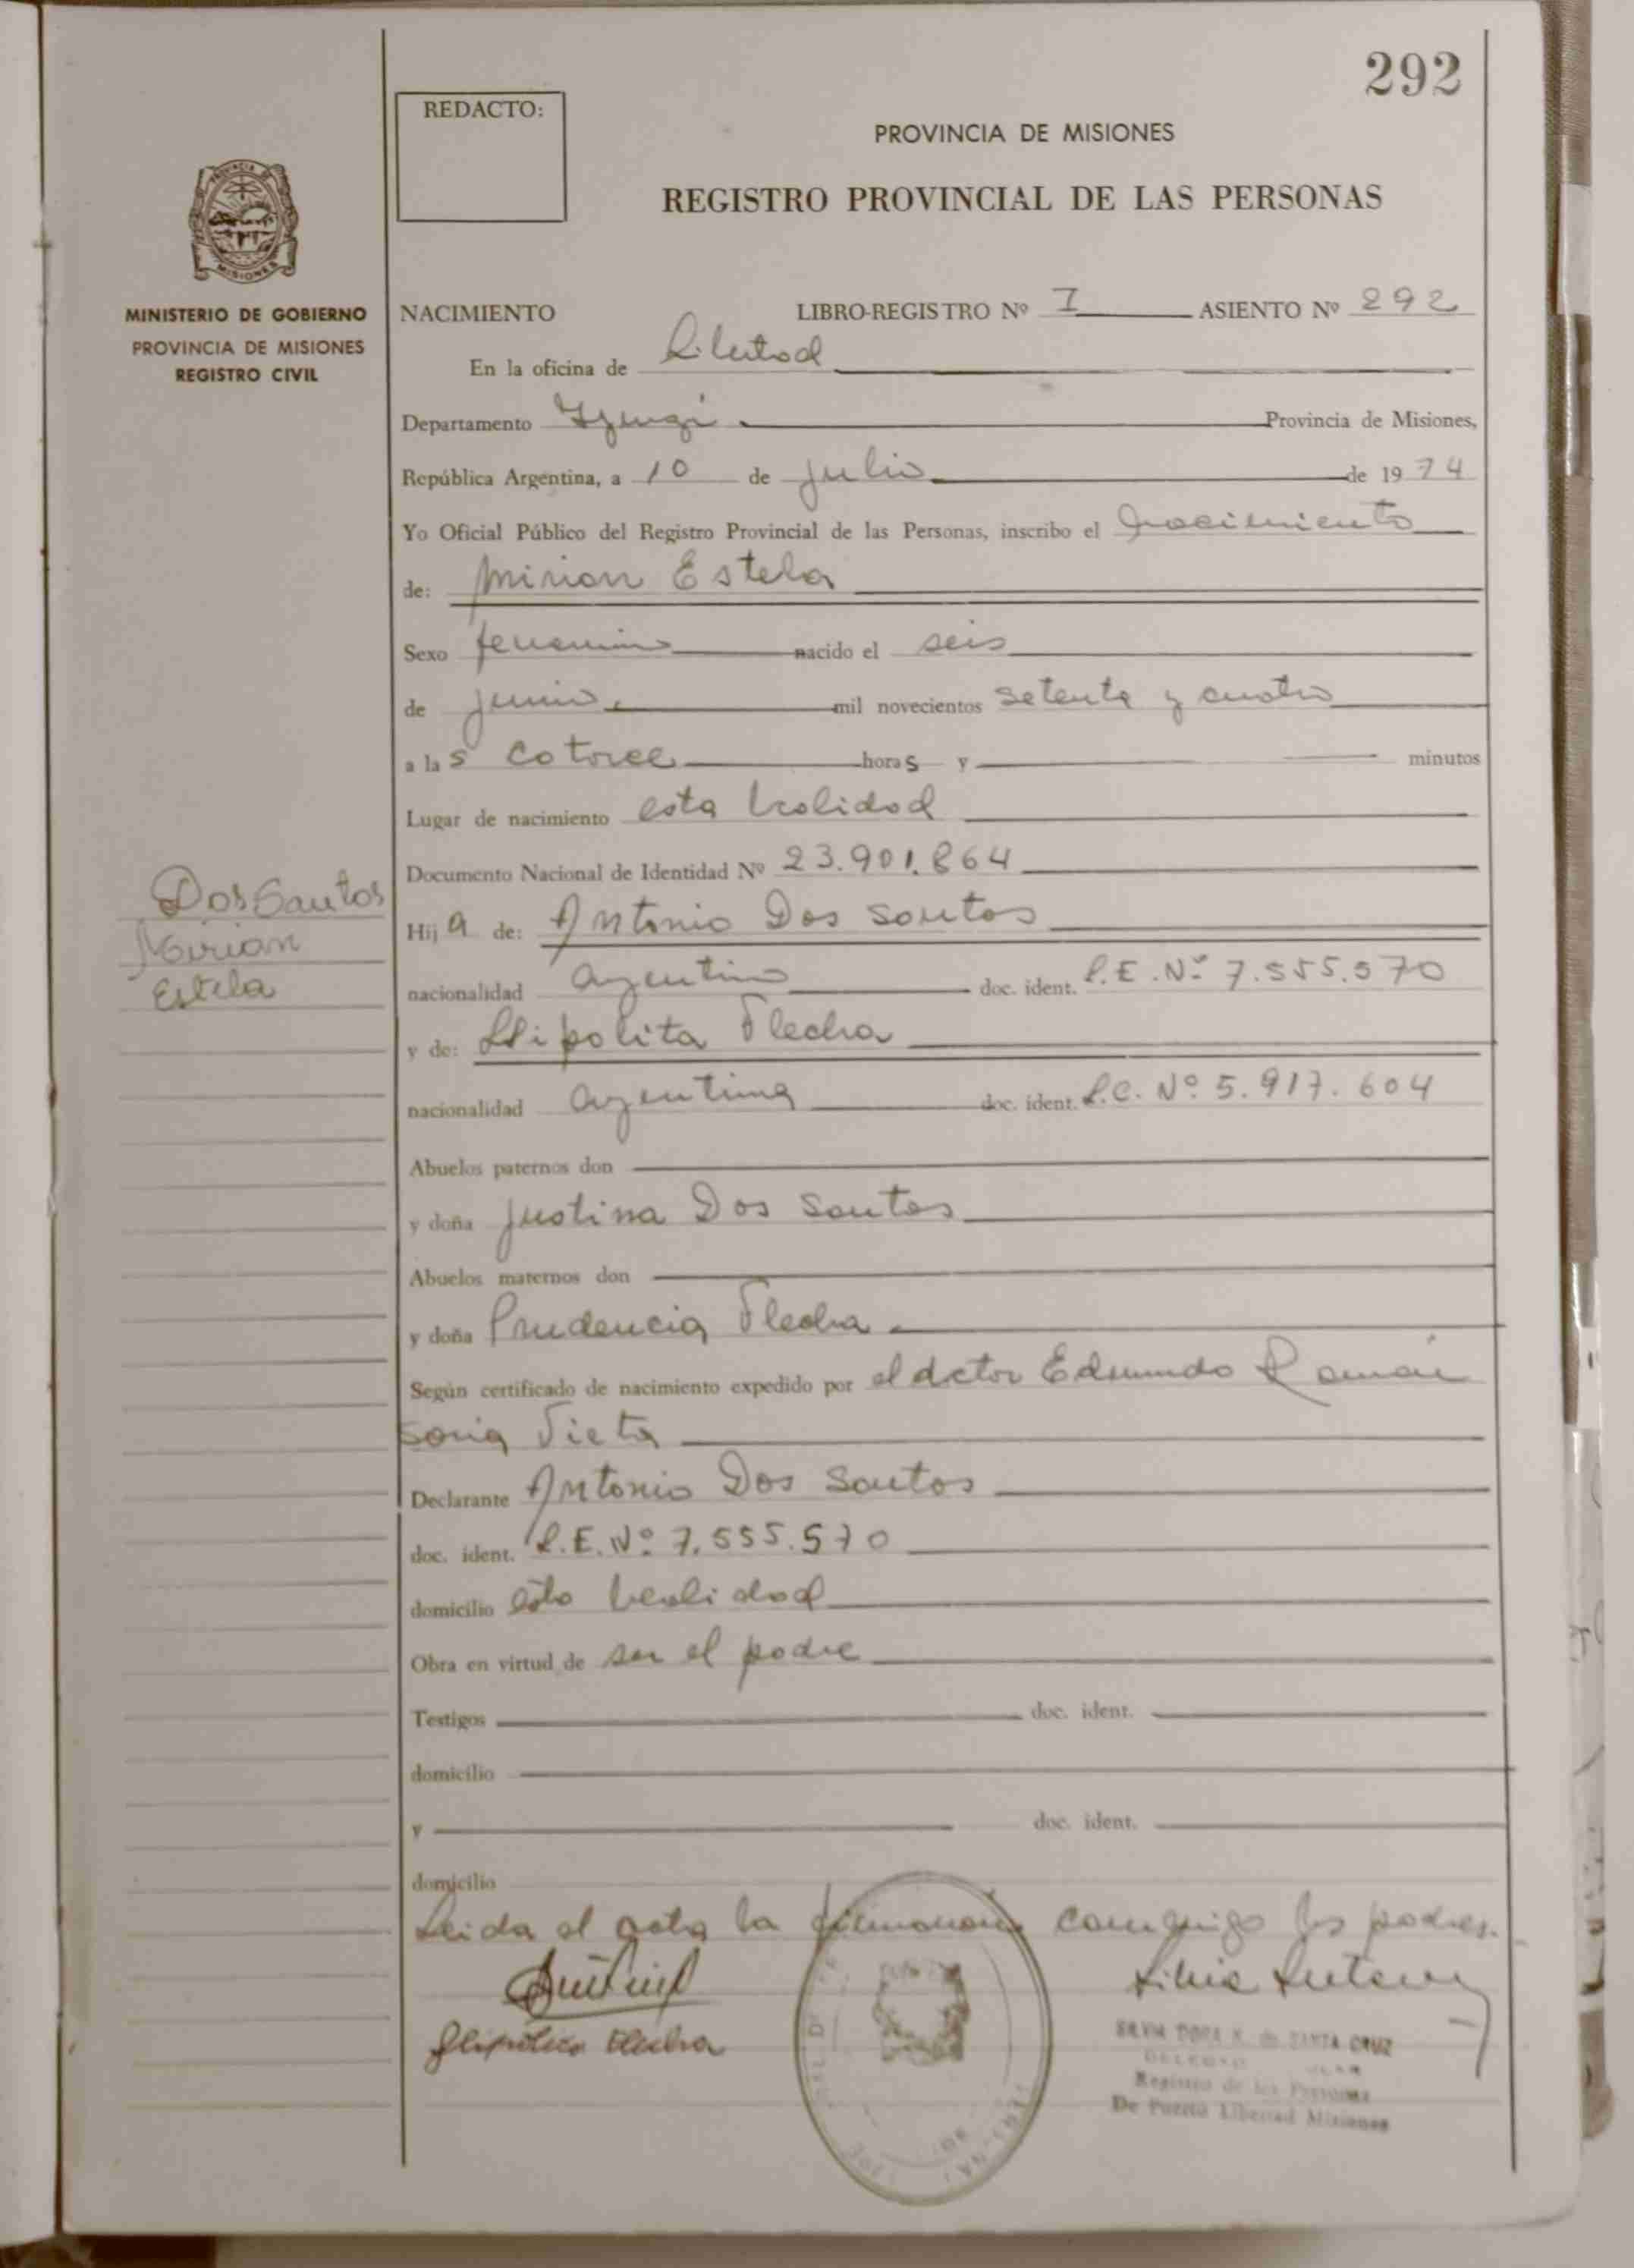 292
REDACTO:
PROVINCIA DE MISIONES
REGISTRO PROVINCIAL DE LAS PERSONAS
PROVINCIA DE
MISIONES
MINISTERIO DE GOBIERNO
PROVINCIA DE MISIONES
REGISTRO CIVIL
NACIMIENTO LIBRO-REGISTRO Nº I ASIENTO Nº 292
En la oficina de Libertad
Departamento Iguazú Provincia de Misiones,
República Argentina, a 10 de julio de 1974
Yo Oficial Público del Registro Provincial de las Personas, inscribo el nacimiento
de: Mirian Estela
Sexo femenino nacido el seis
de junio mil novecientos setenta y cuatro
a las catorce horas y minutos
Lugar de nacimiento esta localidad
Documento Nacional de Identidad Nº 23.901.864
Dos Santos
Mirian
Estela
Hija de: Antonio Dos Santos
nacionalidad argentino doc. ident. L.E. Nº 7.555.570
y de: Hipolita Flecha
nacionalidad argentina doc. ident. L.C. Nº 5.917.604
Abuelos paternos don
y doña Justina Dos Santos
Abuelos maternos don
y doña Prudencia Flecha
Según certificado de nacimiento expedido por el doctor Edmundo Ramón
Soria Vieta
Declarante Antonio Dos Santos
doc. ident. L.E. Nº 7.555.570
domicilio esta localidad
Obra en virtud de ser el padre
Testigos doc. ident.
domicilio
y doc. ident.
domicilio
Leida el acta la firmaron conmigo los padres.
Hipolita Flecha
SILVIA DORA K. de SANTA CRUZ
Registro de las Personas
De Puerto Libertad Misiones